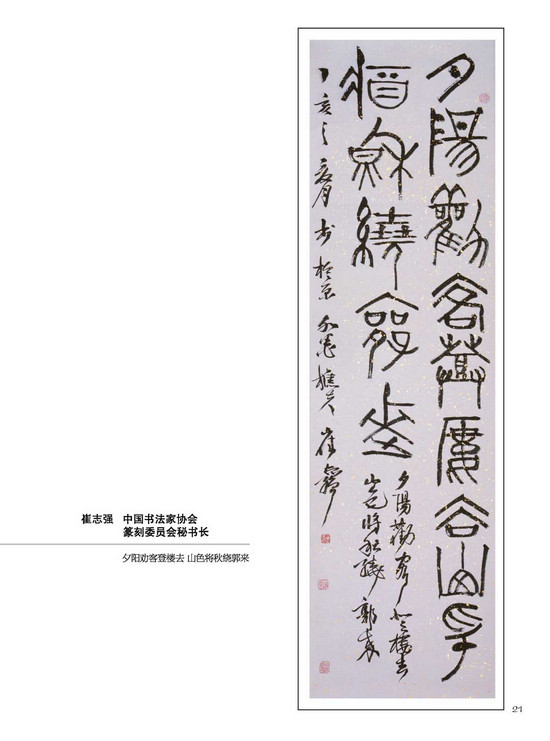 夕陽勸客登樓去山色
將秋繞郭来
夕陽勸客登樓去
山色将秋繞郭来
丁亥之夏月书於京
崔志强 中国书法家协会
篆刻委员会秘书长
夕阳劝客登楼去 山色将秋绕郭来
21